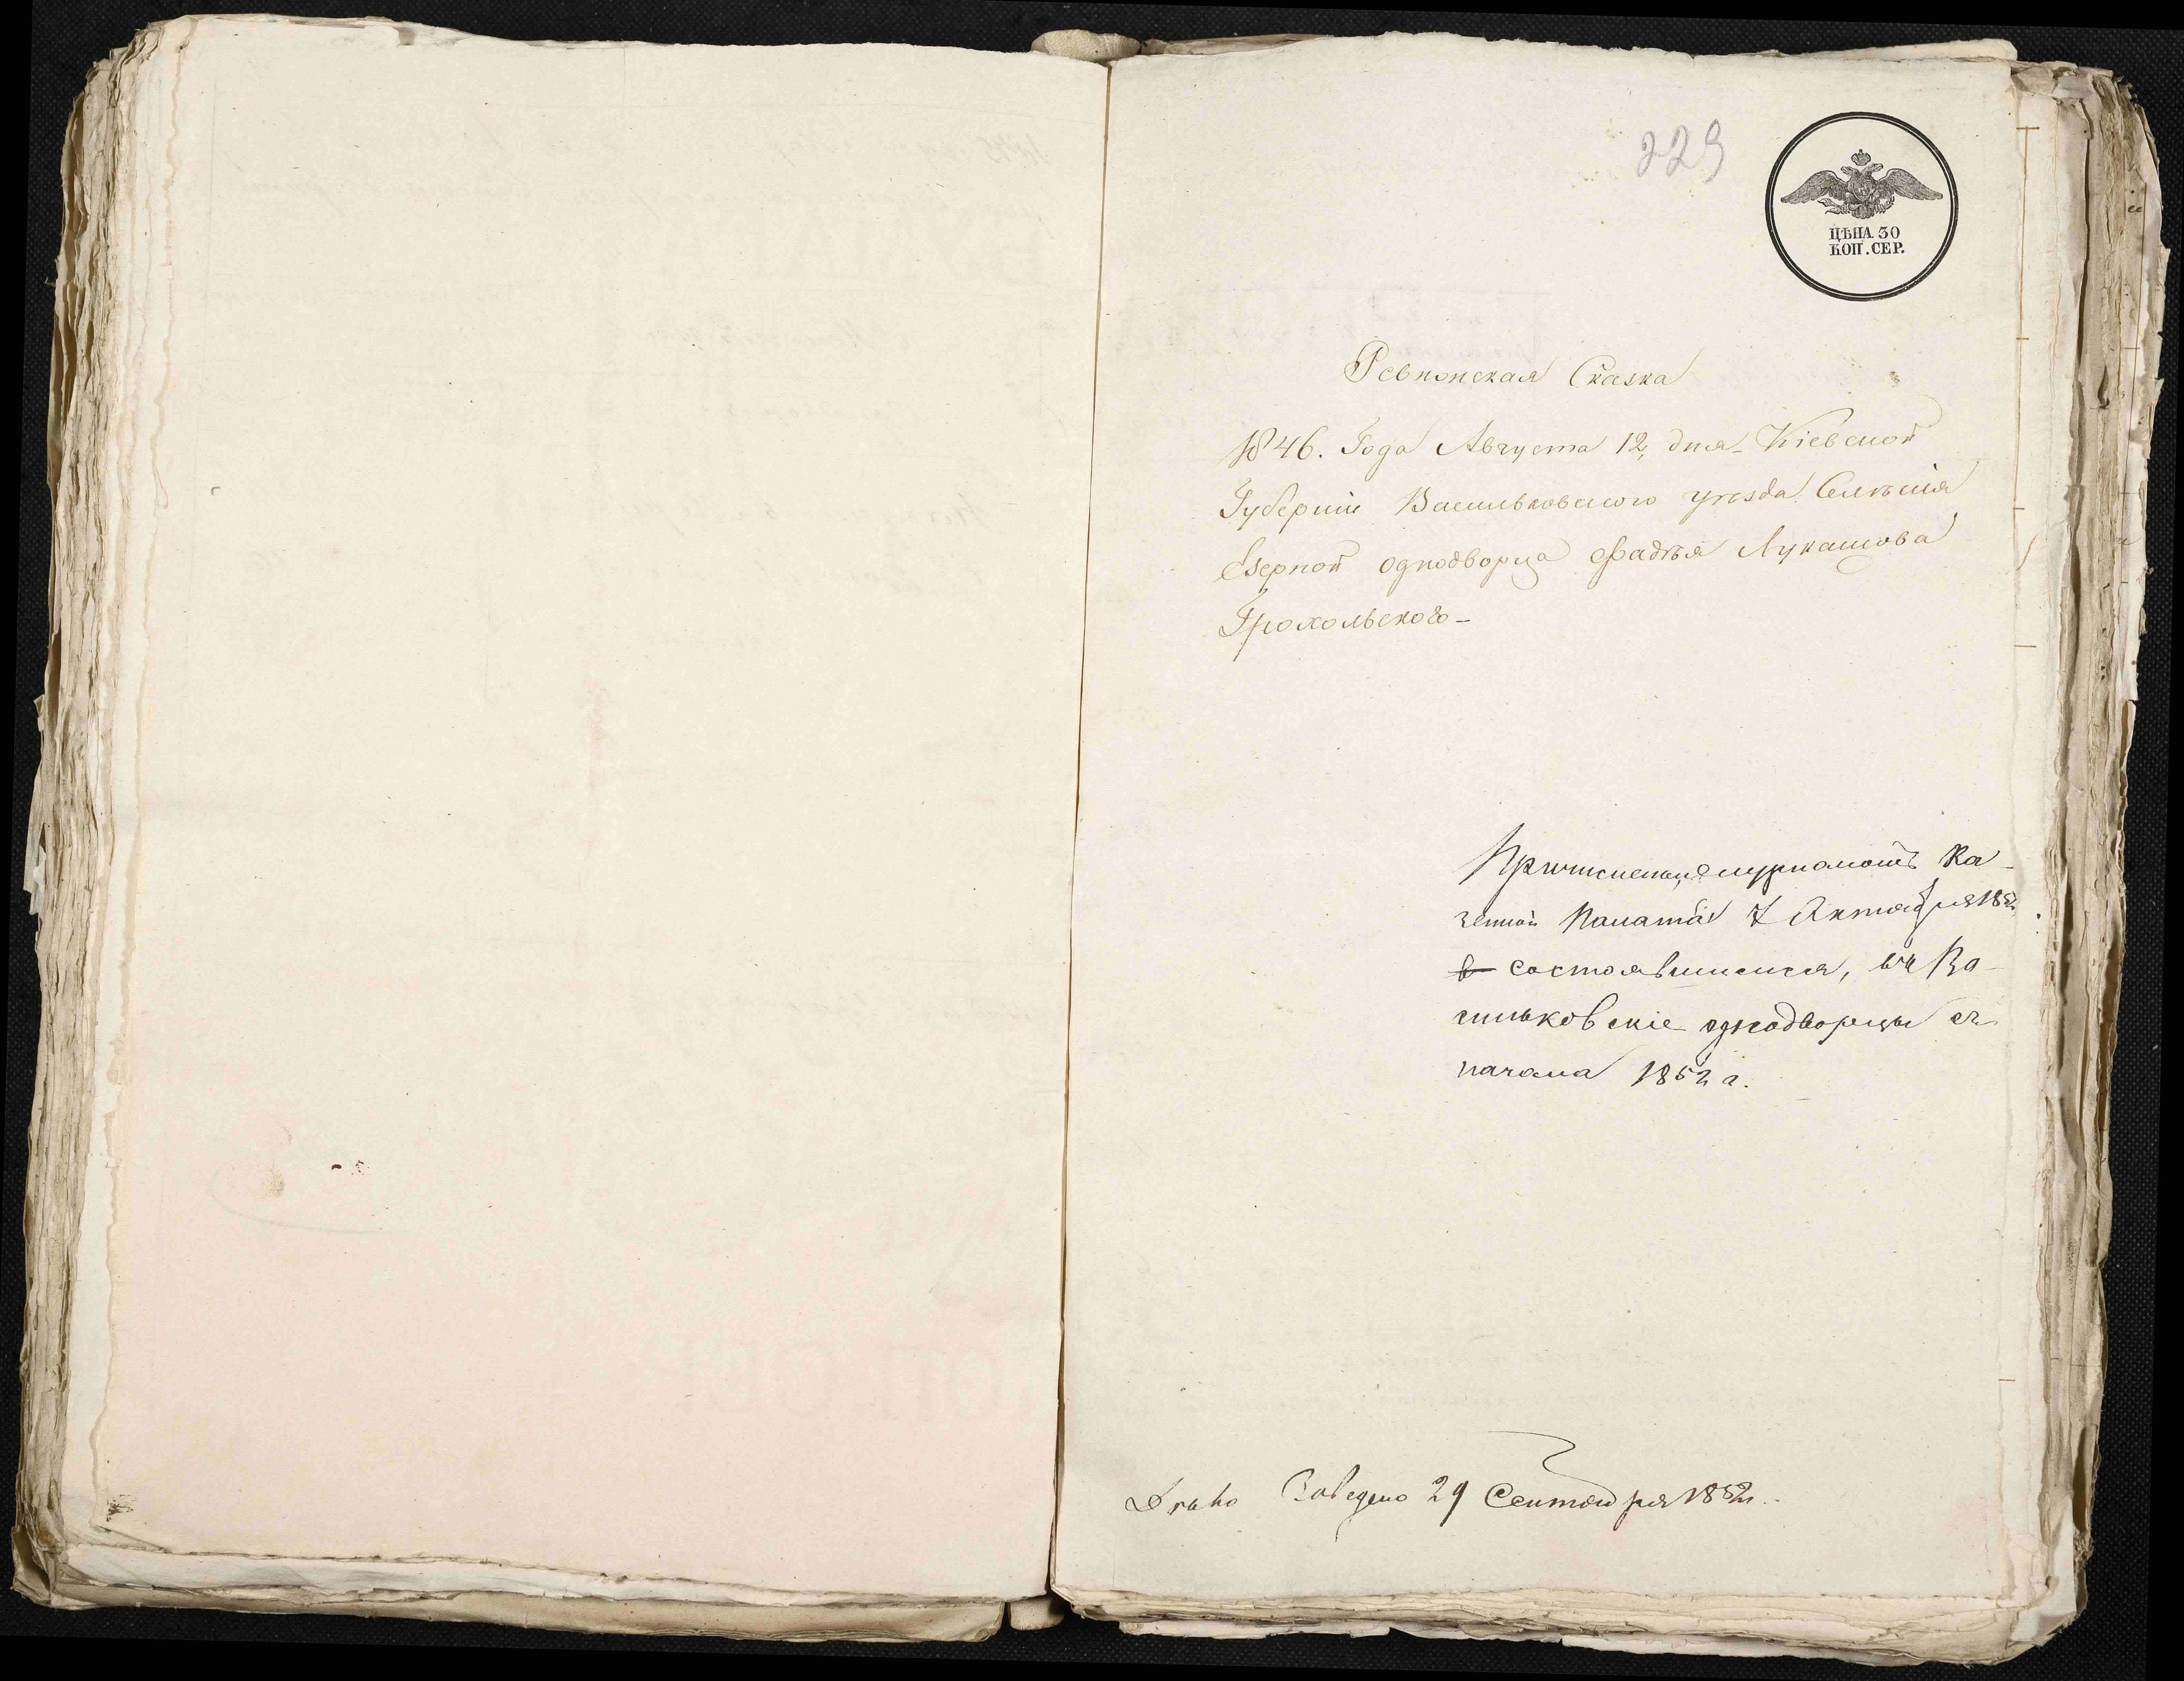 229
ЦѢНА 30
КОП. СЕР.
Ревизская Сказка
1846. Года Августа 12, дня Кіевской
Губерніи Васильковского уѣзда Селенія
Езерной однодворца Фадѣя Лукашова
Грохольского
Причислены журналомъ Ка-
зенной Палаты 7 Октября 1852
состоявшимся, въ Ва-
сильковскіе однодворцы съ
начала 1852 г.
Дѣло Заведено 29 Сентября 1852